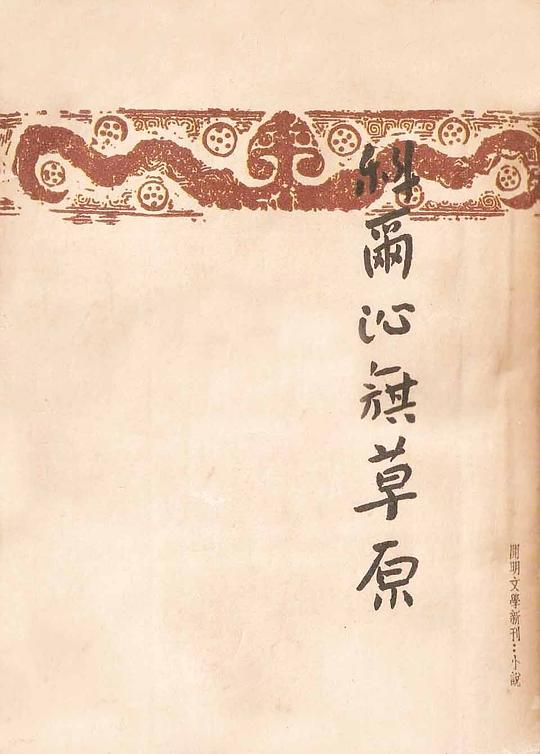 科爾沁旗草原
開明文學新刊:小說